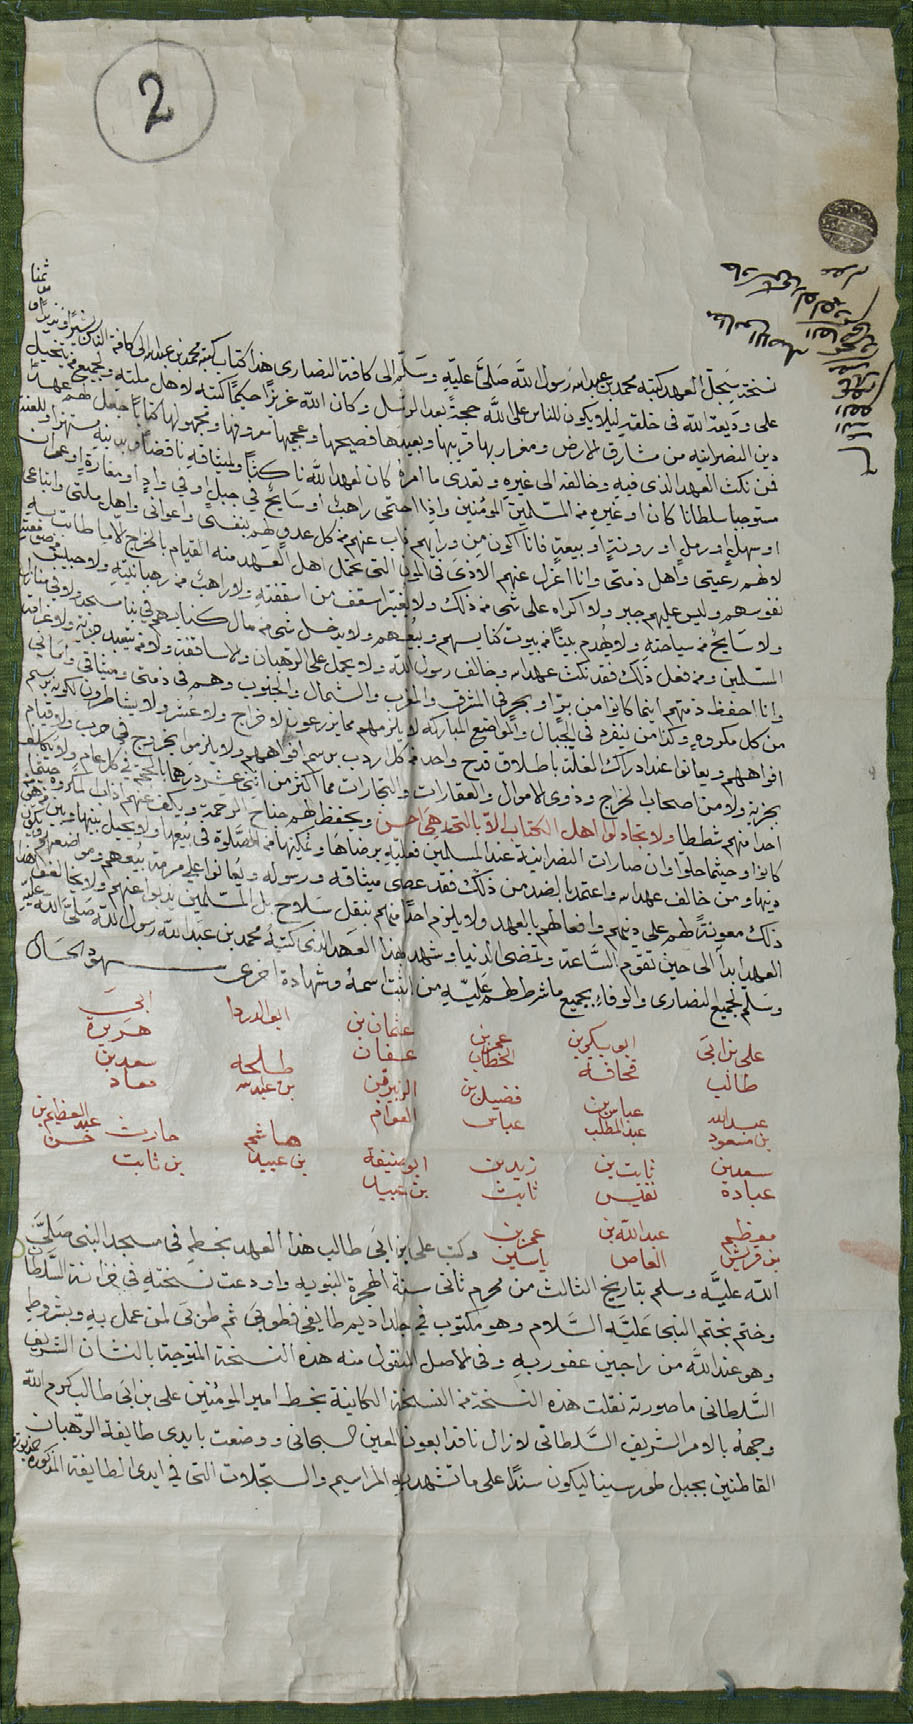 2
نسخة سجل العهد كتبه محمد بن عبد الله رسول الله صلى الله عليه وسلم الى كافة النصارى هذا كتاب كتبه محمد بن عبد الله الى كافة الناس بشيرا ونذيرا و
على وديعة الله فى خلقه ليلا يكون للناس على الله حجة بعد الرسل وكان الله عزيزا حكيما كتبه لاهل ملته ولجميع من ينتحل
دين النصرانيه من مشارق الارض ومغاربها قريبها وبعيدها فصيحها وعجميها معروفها ومجهولها كتابا جعل لهم عهدا
فمن نكث العهد الذى فيه وخالفه الى غيره وتعدى ما امره كان لعهد الله ناكثا ولميثاقه ناقضا وبدينه مستهزا وللعنة
مستوجبا سلطانا كان او غيره من المسلمين المومنين واذا احتمى راهب او سايح فى جبل او فى واد او مغارة او عمران
او سهل او رمل او رونة او بيعة فانا اكون من ورايهم ذاب عنهم من كل عدو لهم بنفسى واعوانى واهل ملتى واتباعى
لانهم رعيتى واهل ذمتى وانا اعزل عنهم الاذى فى المون التى تحمل اهل العهد منه القيام بالخراج الا ما طابت به
نفوسهم وليس عليهم جبر ولا اكراه على شى من ذلك ولا يغير اسقف من اسقفيته ولا راهب من رهبانيته ولا حبيس من صومعته
ولا سايح من سياحته ولا يهدم بيتا من بيوت كنايسهم وبيعهم ولا يدخل شى من مال كنايسهم فى بنا مسجد ولا فى منازل
المسلمين ومن فعل ذلك فقد نكث عهد الله وخالف رسول الله ولا يحمل على الرهبان والاساقفة ولا من يتعبد جزية ولا غرامة
وانا احفظ ذمتهم اينما كانوا من بر او بحر فى المشرق والمغرب والشمال والجنوب وهم فى ذمتى وميثاقى وامانى
من كل مكروه وكذا من يتفرد فى الجبال والمواضع المباركة لا يلزمهم مما يزرعون لا خراج ولا عشر ولا يشاطرون لكونه برسم
افواههم ويعانوا عند ادراك الغلة باطلاق قدح واحد من كل اردب برسم افواههم ولا يلزموا بخروج فى حرب ولا قيام
بجزية ولا من اصحاب الخراج وذوى الاموال والعقارات والتجارات مما اكثر من اثنى عشر درهما بالحجة فى كل عام ولا يكلف
احدا منهم شططا ولا تجادلوا اهل الكتاب الا بالتى هى احسن ويحفظ لهم جناح الرحمة ويكف عنهم اذب المكروه حيثما
كانوا وحيثما حلوا وان صارت النصرانية عند المسلمين فعليه برضاها وتمكينها من الصلاة فى بيعها ولا يحيل بينها وبين هوى
دينها ومن خالف عهد الله واعتمد بالضد من ذلك فقد عصى ميثاقه ورسوله ويعانوا على مرمة بيعهم
ذلك معونة لهم على دينهم وافعالهم بالعهد ولا يلزم احدا منهم بنقل سلاح بل المسلمين يذبوا عنهم ولا يخالف هذا
العهد ابدا الى حين تقوم الساعة وتنقضى الدنيا وشهد بهذا العهد الذى كتبه محمد بن عبد الله رسول الله صلى الله عليه
وسلم لجميع النصارى والوفاء بجميع ما شرط لهم عليه من اثبت اسمه وشهادة اخرى شهود الحال
على بن ابى طالب ابو بكر بن قحافة عمر بن الخطاب عثمان بن عفان ابو الدردا ابى هريرة
عبد الله بن مسعود عباس بن عبد المطلب فضيل بن عباس الزبير بن العوام طلحة بن عبد الله سعد بن معاذ
سعد بن عبادة ثابت بن نفيس زيد بن ثابت ابو حنيفة بن عبيد هاشم بن عبيد حارث بن ثابت عبد العظيم بن حسن
معظم بن قريش عبد الله بن العاص عمر بن ياسين وكتب على بن ابى طالب هذا العهد بخطه فى مسجد النبى صلى
الله عليه وسلم بتاريخ الثالث من محرم ثانى سنة الهجرة النبويه واودعت نسخته فى خزانة السلطان
وختم بختم النبى عليه السلام وهو مكتوب فى جلد اديم طايفى فطوبى ثم طوبى لمن عمل به وبشروطه
وهو عند الله من راجين عفو ربه وفى الاصل المنقول منه هذه النسخة المتوجة بالنشان الشريف
السلطانى ما صورته نقلت هذه النسخة من النسخة الكاينة بخط امير المومنين على بن ابى طالب كرم الله
وجهه بالامر الشريف السلطانى لا زال نافدا بعون المعين السبحانى ووضعت بايدى طايفة الرهبان
القاطنين بجبل طور سينا ليكون سندا على ما تشهد به المراسيم والسجلات التى فى ايدى الطايفة المذكورة